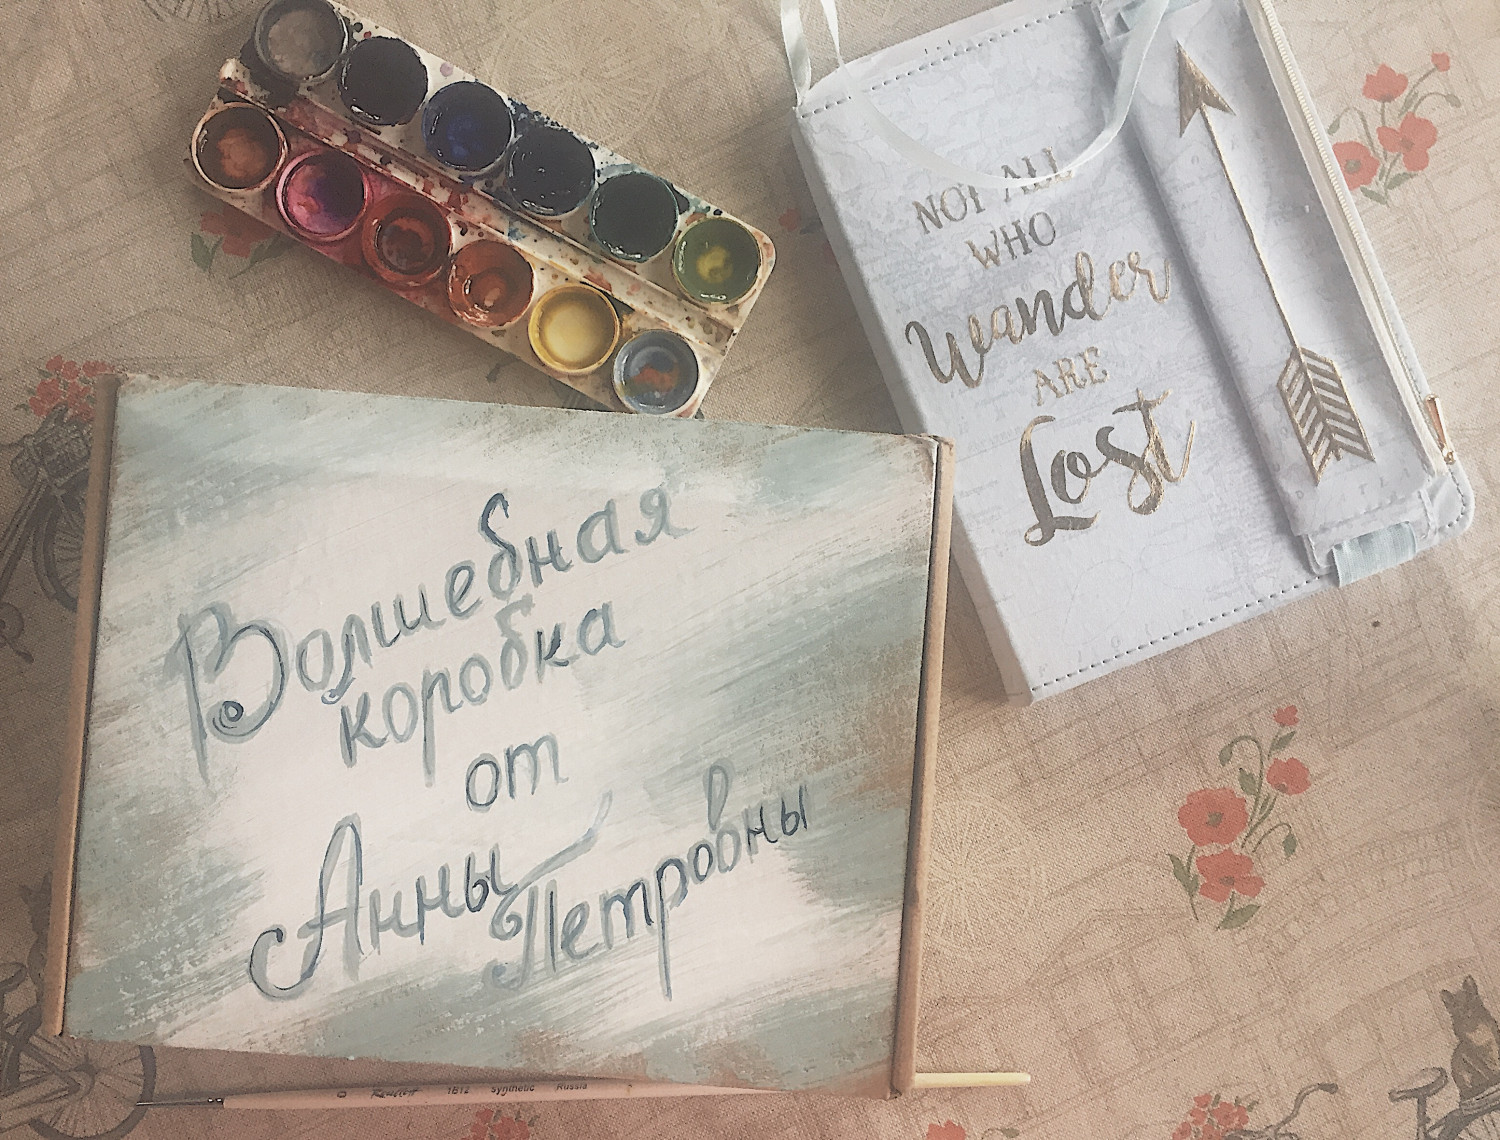 NOT ALL
WHO
Wander
ARE
Lost
Волшебная
коробка
от
Анны
Петровны
1B12 synthetic Russia